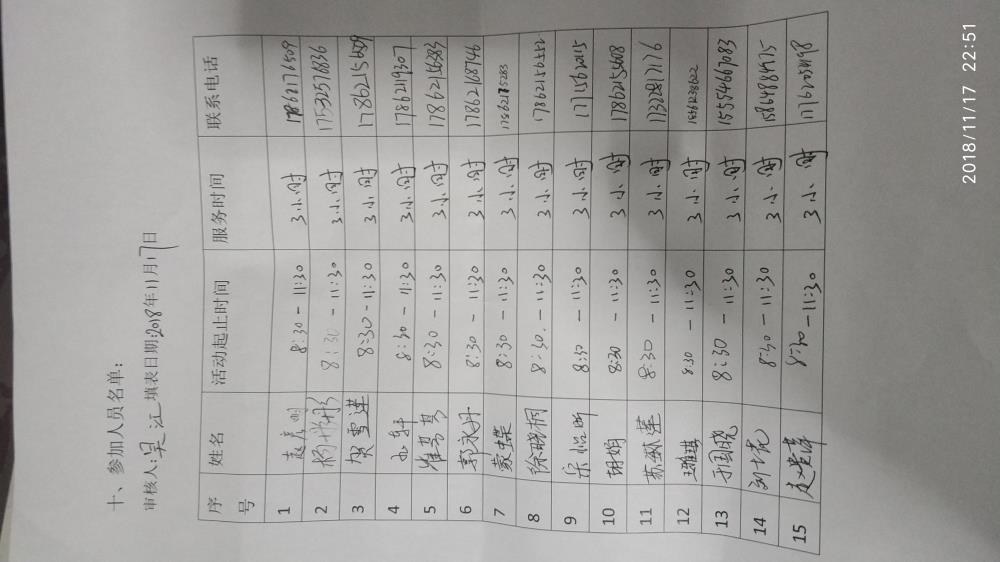 十、参加人员名单：
审核人：吴江 填表日期：2018年11月17日
序号 姓名 活动起止时间 服务时间 联系电话
1 8:30-11:30 3小时
2 8:30-11:30 3小时 17532576836
3 贺雪莲 8:30-11:30 3小时
4 8:30-11:30 3小时 17862119307
5 8:30-11:30 3小时 17862156383
6 郭永丹 8:30-11:30 3小时 17862168746
7 蒙蝶 8:30-11:30 3小时 17862175283
8 徐晓桐 8:30-11:30 3小时 17862156552
9 8:30-11:30 3小时 1771562015
10 胡娟 8:30-11:30 3小时 17862156608
11 8:30-11:30 3小时 17328217176
12 8:30-11:30 3小时
13 于国晓 8:30-11:30 3小时 15554667083
14 8:30-11:30 3小时 15864884975
15 8:30-11:30 3小时 17762054198
2018/11/17 22:51